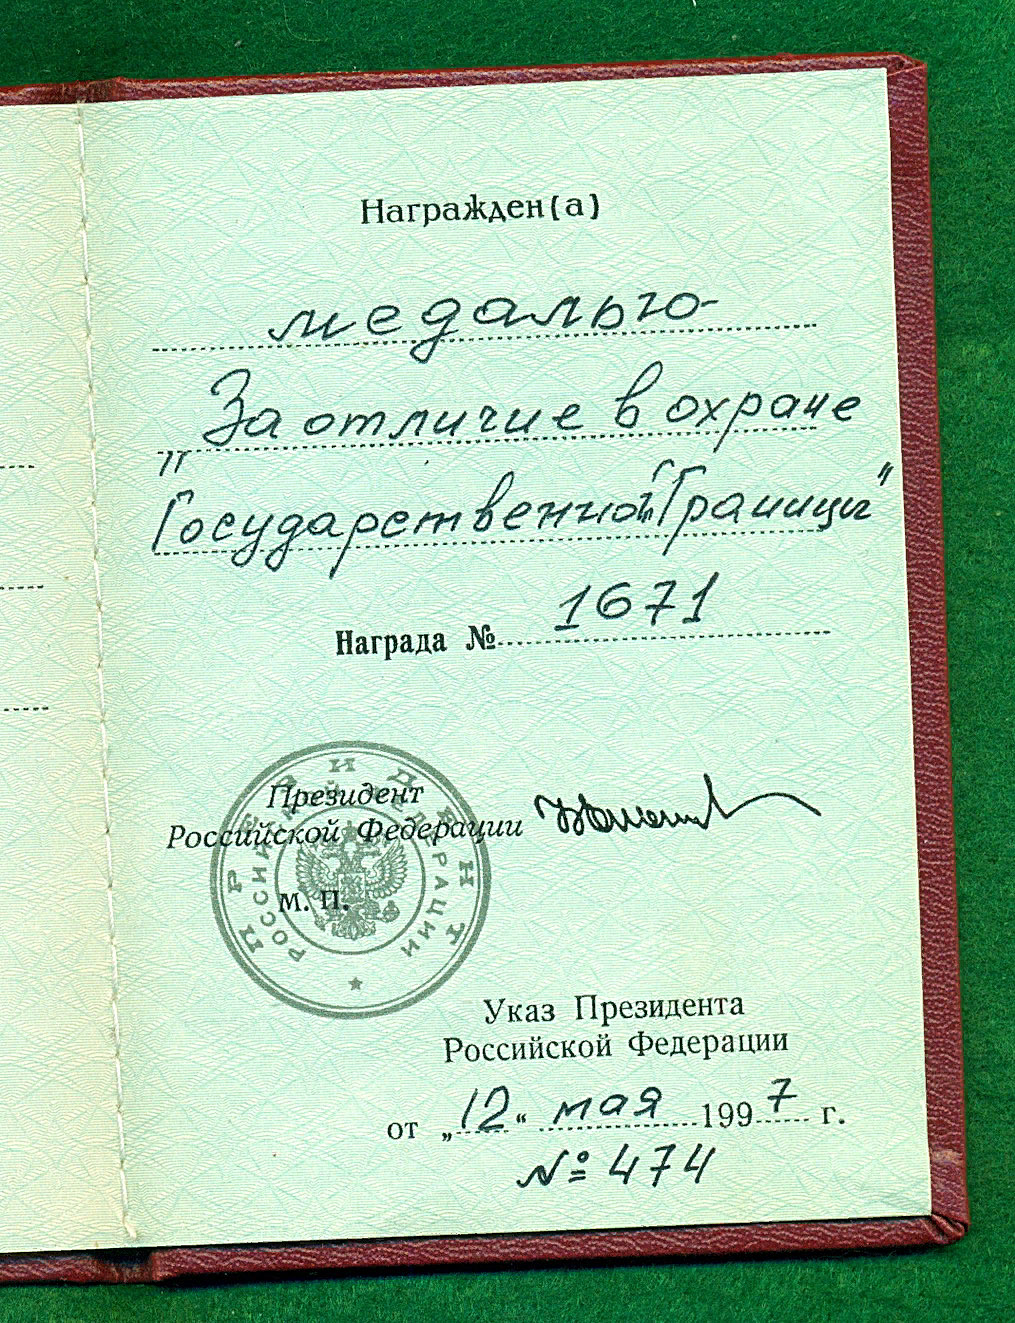 Награжден(а)
медалью
"За отличие в охране
Государственной Границы"
Награда № 1671
Президент
Российской Федерации
М. П.
ПРЕЗИДЕНТ
РОССИЙСКОЙ ФЕДЕРАЦИИ
Указ Президента
Российской Федерации
от „12“ мая 1997 г.
№ 474